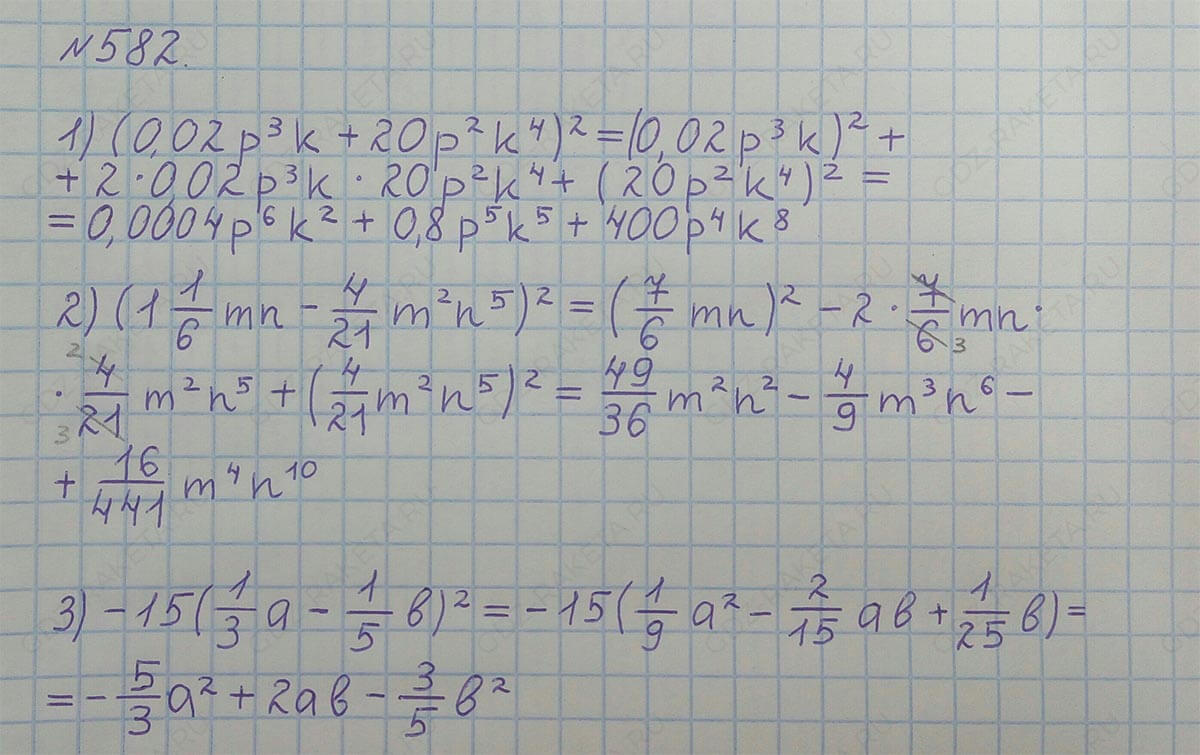 №582.
1) (0,02p³k + 20p²k⁴)² = (0,02p³k)² +
+ 2·0,02p³k · 20p²k⁴ + (20p²k⁴)² =
= 0,0004p⁶k² + 0,8p⁵k⁵ + 400p⁴k⁸
2) (1 1/6 mn - 4/21 m²n⁵)² = (7/6 mn)² - 2 · 7/6 3 mn ·
· 2 4/21 3 m²n⁵ + (4/21 m²n⁵)² = 49/36 m²n² - 4/9 m³n⁶ -
+ 16/441 m⁴n¹⁰
3) -15(1/3 a - 1/5 в)² = -15(1/9 a² - 2/15 aв + 1/25 в) =
= -5/3 a² + 2aв - 3/5 в²
GDZ-RAKETA.RU